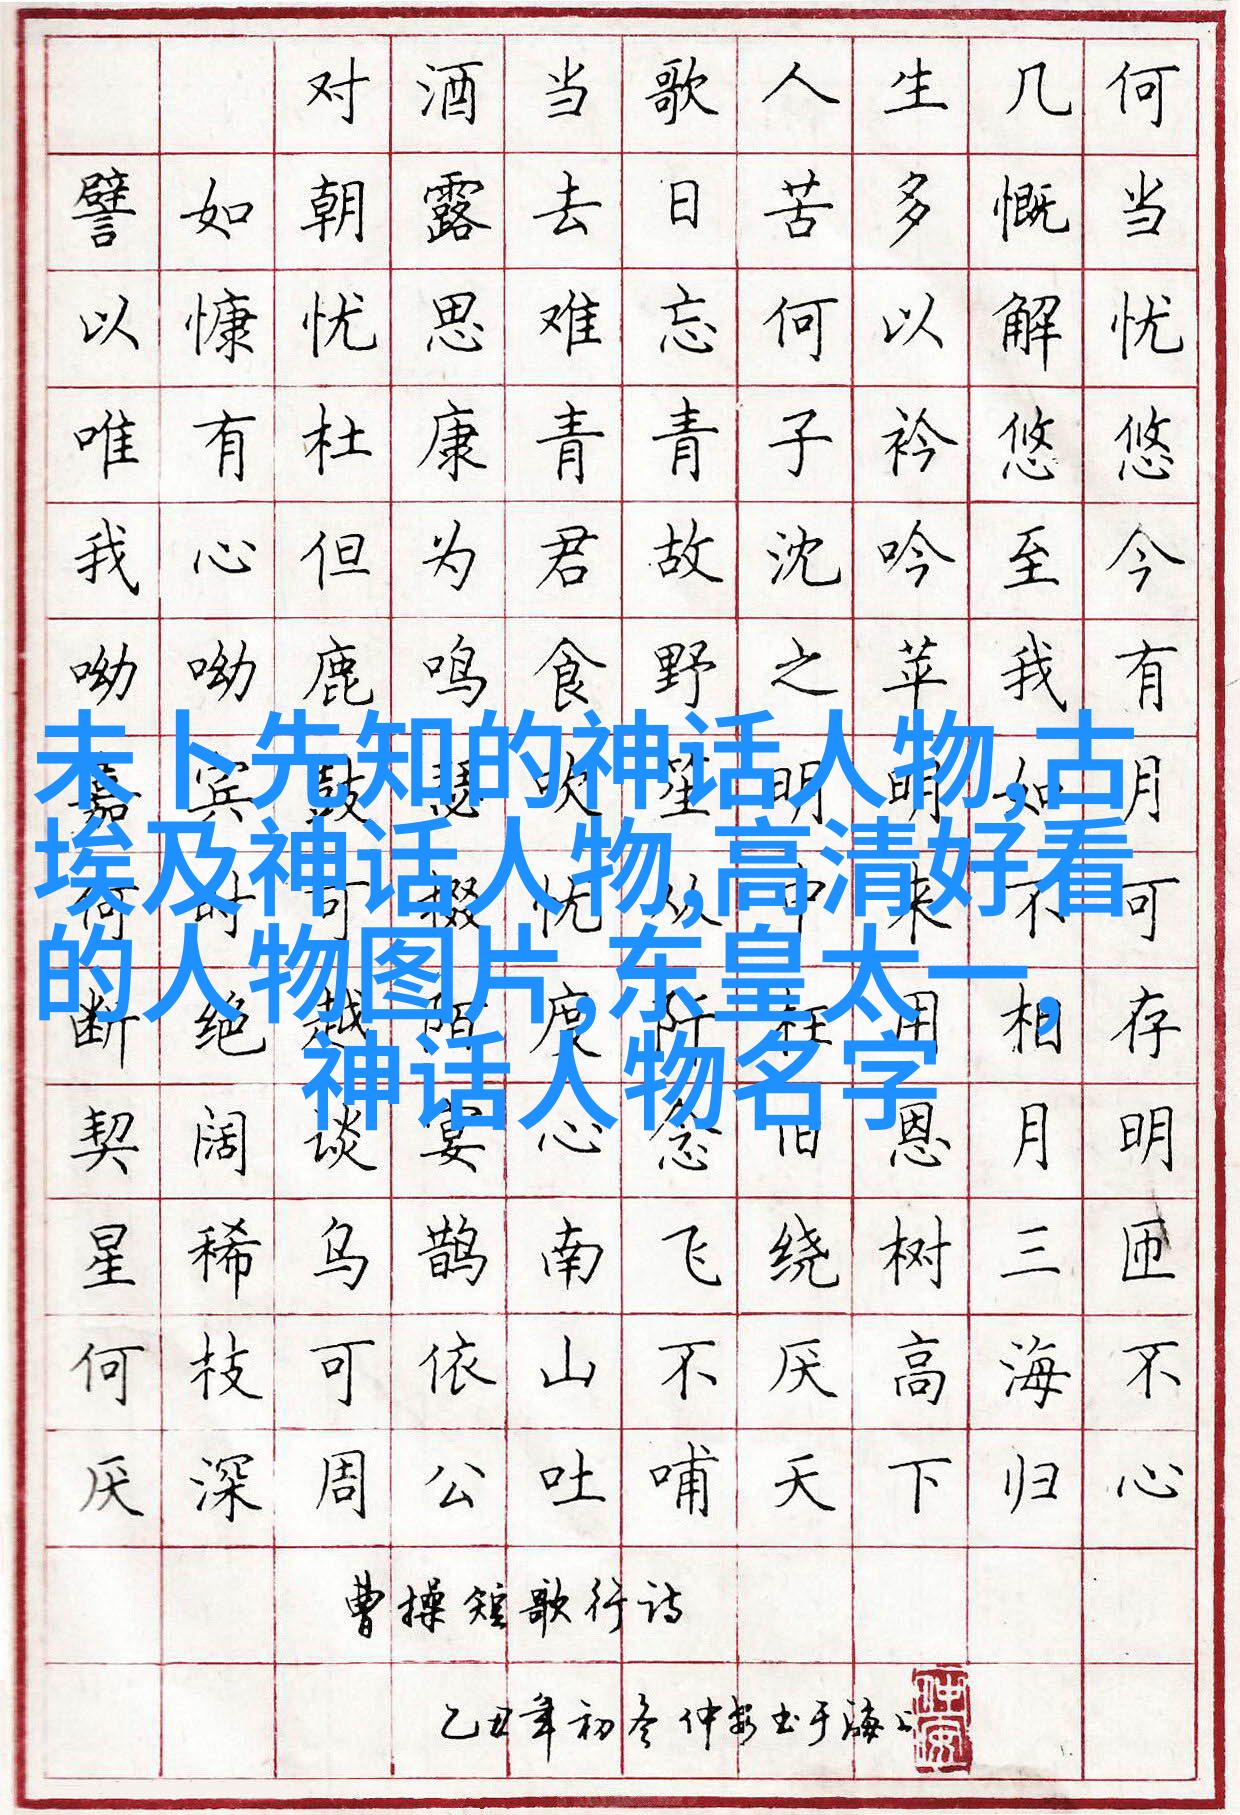 对酒当歌人生几何
譬如朝露去日苦多慨当
以慷忧思难忘何以解忧
唯有杜康青青子衿悠悠
我心但为君故沈吟至今
呦呦鹿鸣食野之苹我有
嘉宾鼓瑟吹笙明明如月
何时可掇忧从中来不可
断绝越陌度阡枉用相存
契阔谈宴心念旧恩月明
星稀乌鹊南飞绕树三匝
何枝可依山不厌高海不
厌深周公吐哺天下归心
曹操短歌行诗
乙丑年初冬仲安书于海上
仲安
未卜先知的神话人物,古
埃及神话人物,高清好看
的人物图片,东皇太一,
神话人物名字